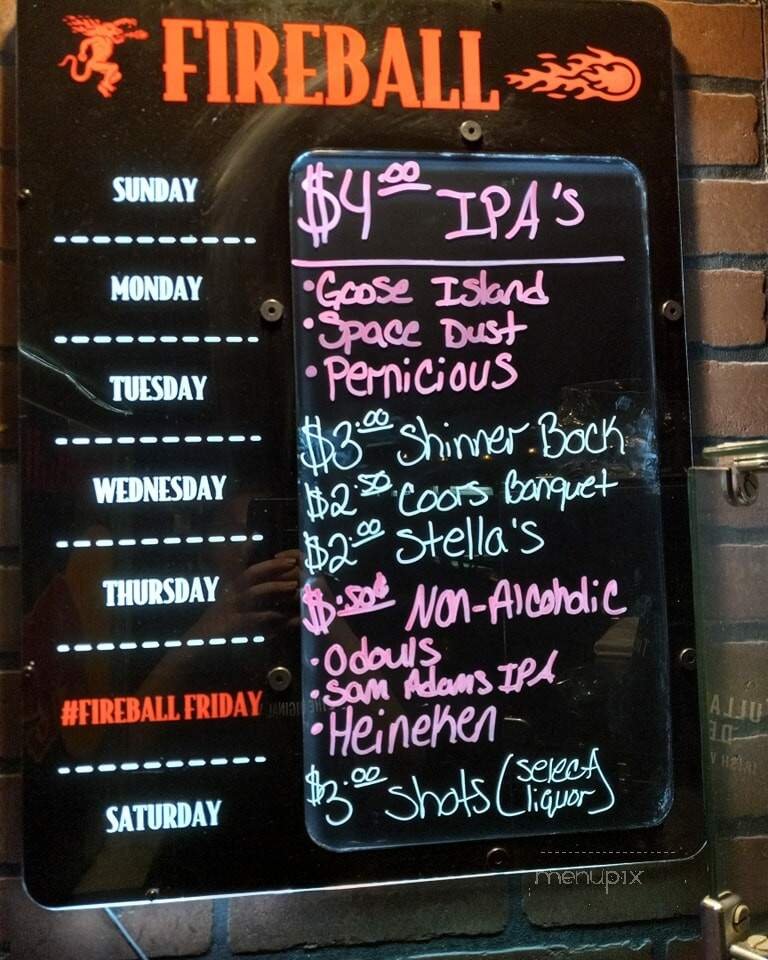 FIREBALL
SUNDAY
MONDAY
TUESDAY
WEDNESDAY
THURSDAY
#FIREBALL FRIDAY
SATURDAY
$4.00 IPA'S
•Goose Island
•Space Dust
•Pernicious
$3.00 Shinner Bock
$2.50 Coors Banquet
$2.00 Stella's
$.50¢ Non-Alcoholic
•Odouls
•Sam Adams IPA
•Heineken
$3.00 Shots (select liquor)
menupix